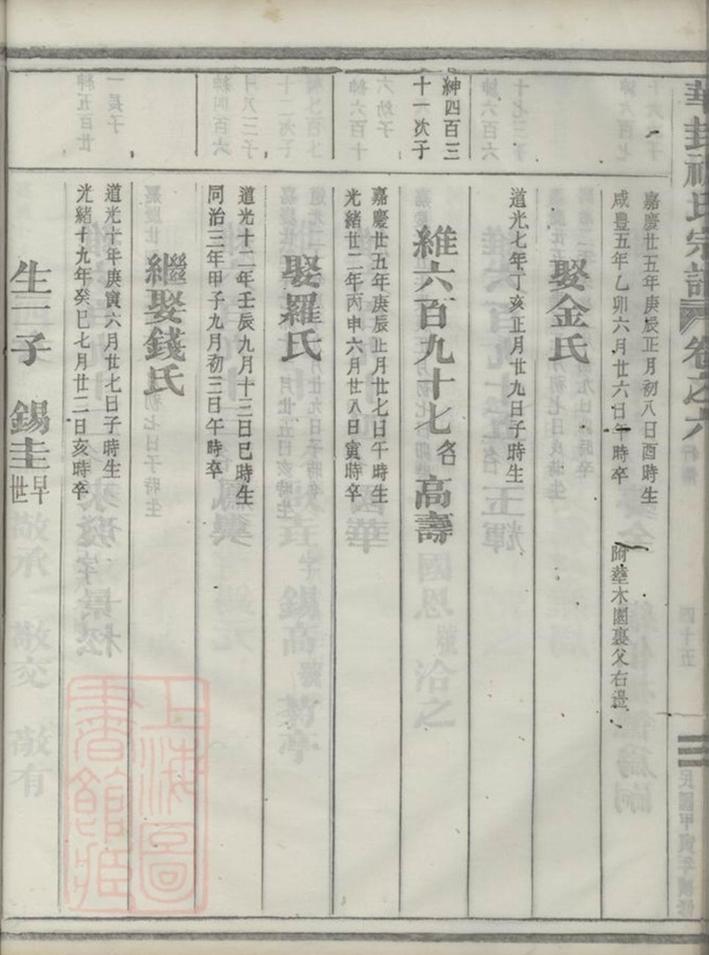 嘉慶廿五年庚辰正月初八日酉時生
咸豊五年乙卯六月廿六日午時卒
附塟木園裏父右邉
娶金氏
道光七年丁亥正月廿九日子時生
紳四百三
十一次子
維六百九十七名高壽
嘉慶廿五年庚辰正月廿七日午時生
光緒廿二年丙申六月廿八日寅時卒
娶羅氏
道光十二年壬辰九月十三日巳時生
同治三年甲子九月初三日午時卒
繼娶錢氏
道光十年庚寅六月廿七日子時生
光緒十九年癸巳七月廿二日亥時卒
生一子 錫圭早世
上海圖
書館藏